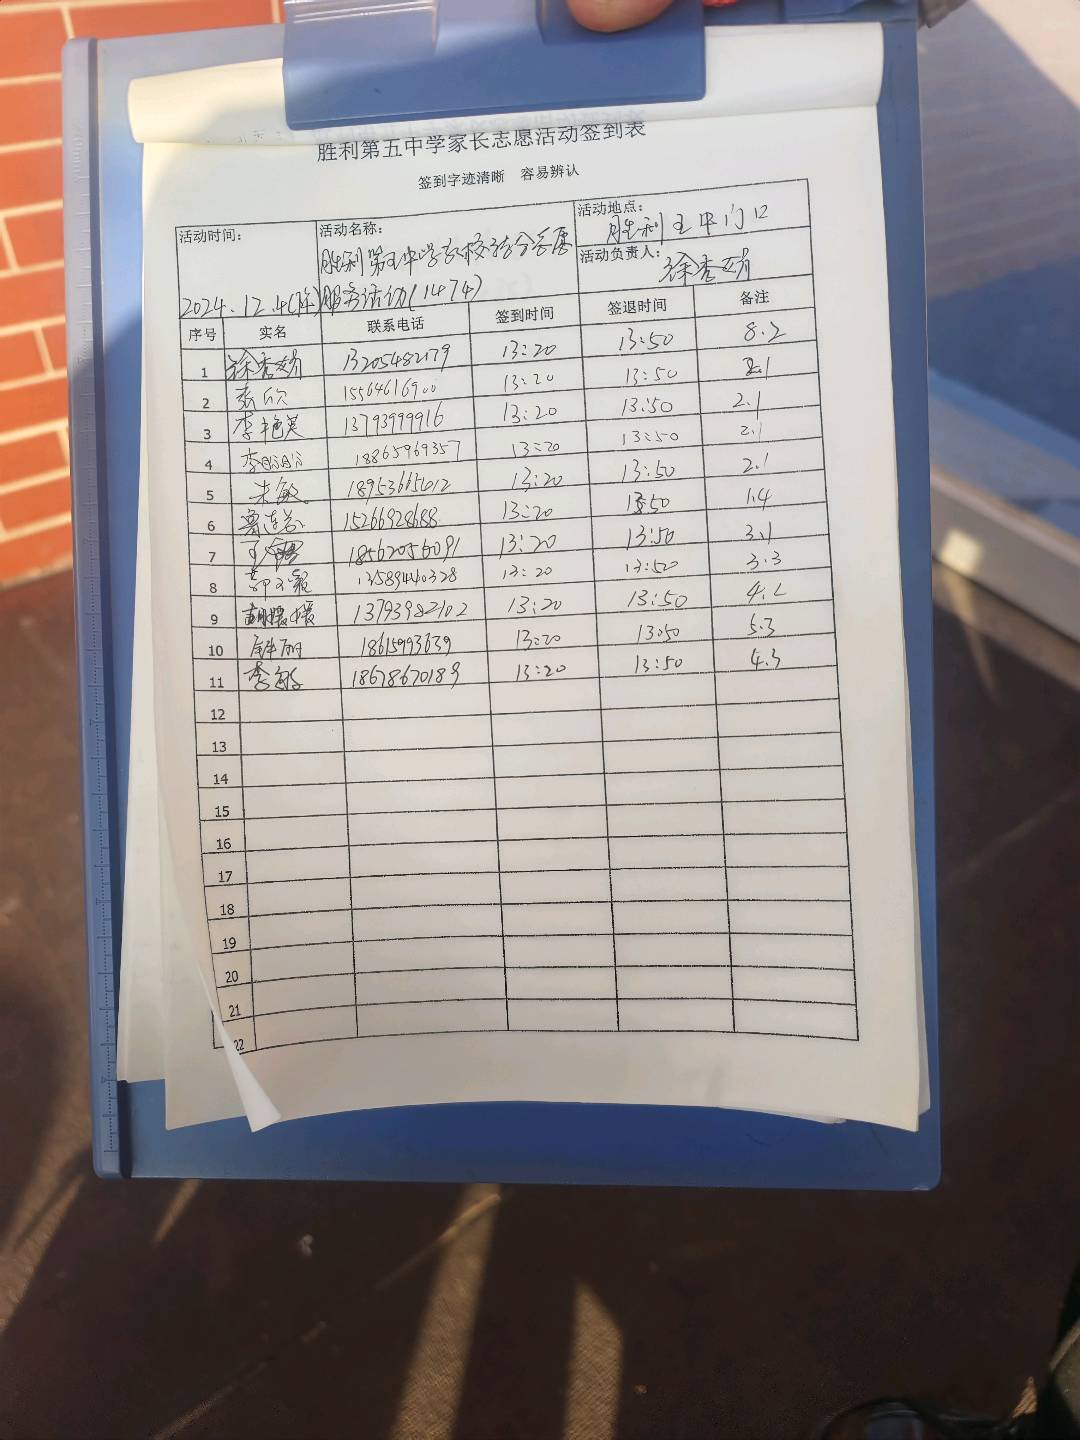 胜利第五中学家长志愿活动签到表
签到字迹清晰 容易辨认
活动时间: 2024.12.4(
活动名称: 胜利第五中学 服务活动(1474)
活动地点: 胜利五中门口
活动负责人: 徐秀娟
序号 实名 联系电话 签到时间 签退时间 备注
1 徐秀娟 13205482179 13:20 13:50 8.2
2 15564616900 13:20 13:50 2.1
3 李艳英 13793999916 13:20 13:50 2.1
4 李盼盼 18865969357 13:20 13:50 2.1
5 朱敏 18953665012 13:20 13:50 2.1
6 15266928688 13:20 13:50 1.4
7 18562056091 13:20 13:50 3.1
8 13:20 13:50 3.3
9 13793982102 13:20 13:50 4.2
10 18615993639 13:20 13:50 5.3
11 李敏 18678670189 13:20 13:50 4.3
12
13
14
15
16
17
18
19
20
21
22